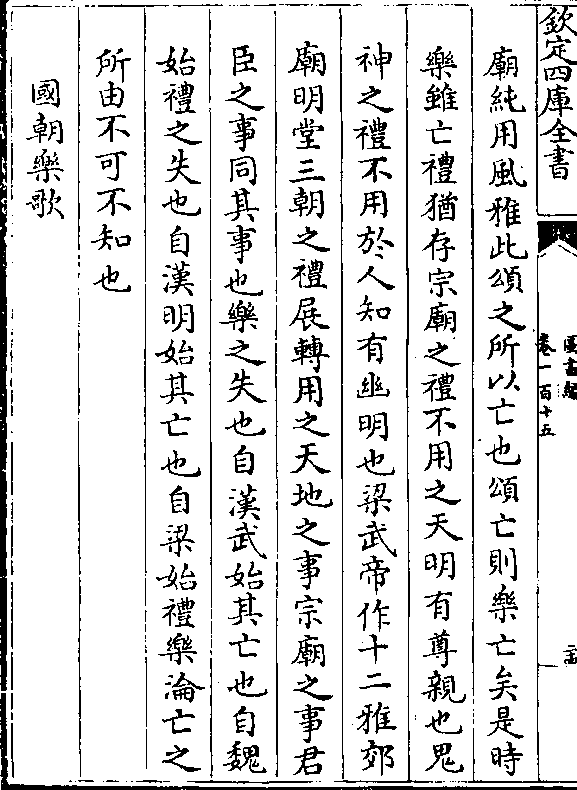 欽定四庫全書
圖書編
卷一百十五
廟純用風雅此頌之所以亡也頌亡則樂亡矣是時
樂雖亡禮猶存宗廟之禮不用之天明有尊親也鬼
神之禮不用於人知有幽明也梁武帝作十二雅郊
廟明堂三朝之禮展轉用之天地之事宗廟之事君
臣之事同其事也樂之失也自漢武始其亡也自魏
始禮之失也自漢明始其亡也自梁始禮樂淪亡之
所由不可不知也
國朝樂歌